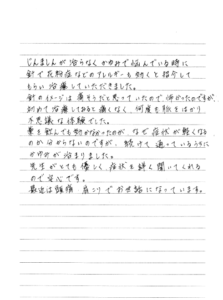 じんましんが治らなくかゆみで悩んでいる時に
針で花粉症などのアレルギーも効くと紹介して
もらい治療していただきました。
針のイメージは痛そうだと思っていたので怖かったのですが
初めて治療してみると痛くなく、何度も脈をはかり
不思議な体験でした。
薬を飲んでも効かなかったのが、なぜ症状が軽くなる
のか分からないのですが、続けて通っているうちに
かゆみが治まりました。
先生がとても優しく症状を詳く聞いてくれる
ので安心です。
最近は頭痛 肩こりでお世話になっています。